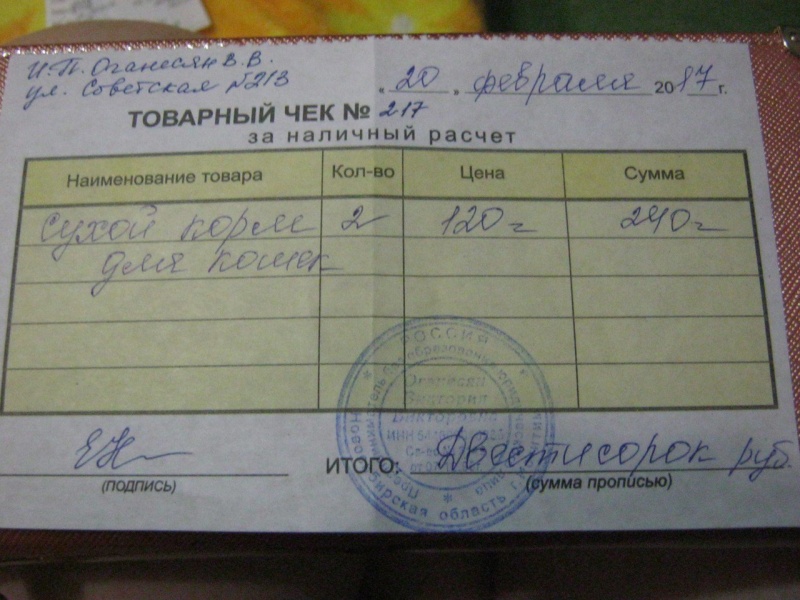 И.П. Оганесян В.В.
ул. Советская №213
" 20 " февраля 2017 г.
ТОВАРНЫЙ ЧЕК № 217
за наличный расчет
Наименование товара Кол-во Цена Сумма
Сухой корм 2 120= 240=
для кошек
РОССИЯ
Оганесян
Виктория
Викторовна
ИНН
область г.
ИТОГО: Двести сорок руб.
(подпись) (сумма прописью)